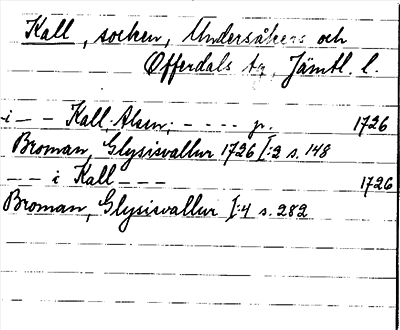 Kall, socken, Undersåkers och
Offerdals tg, Jämtl. l.
i – – Kall, Alsen, - - - - - p. 1726
Broman, Glysisvallur 1726 I:2 s. 148
– – i Kall – – – 1726
Broman, Glysisvallur I:4 s. 282